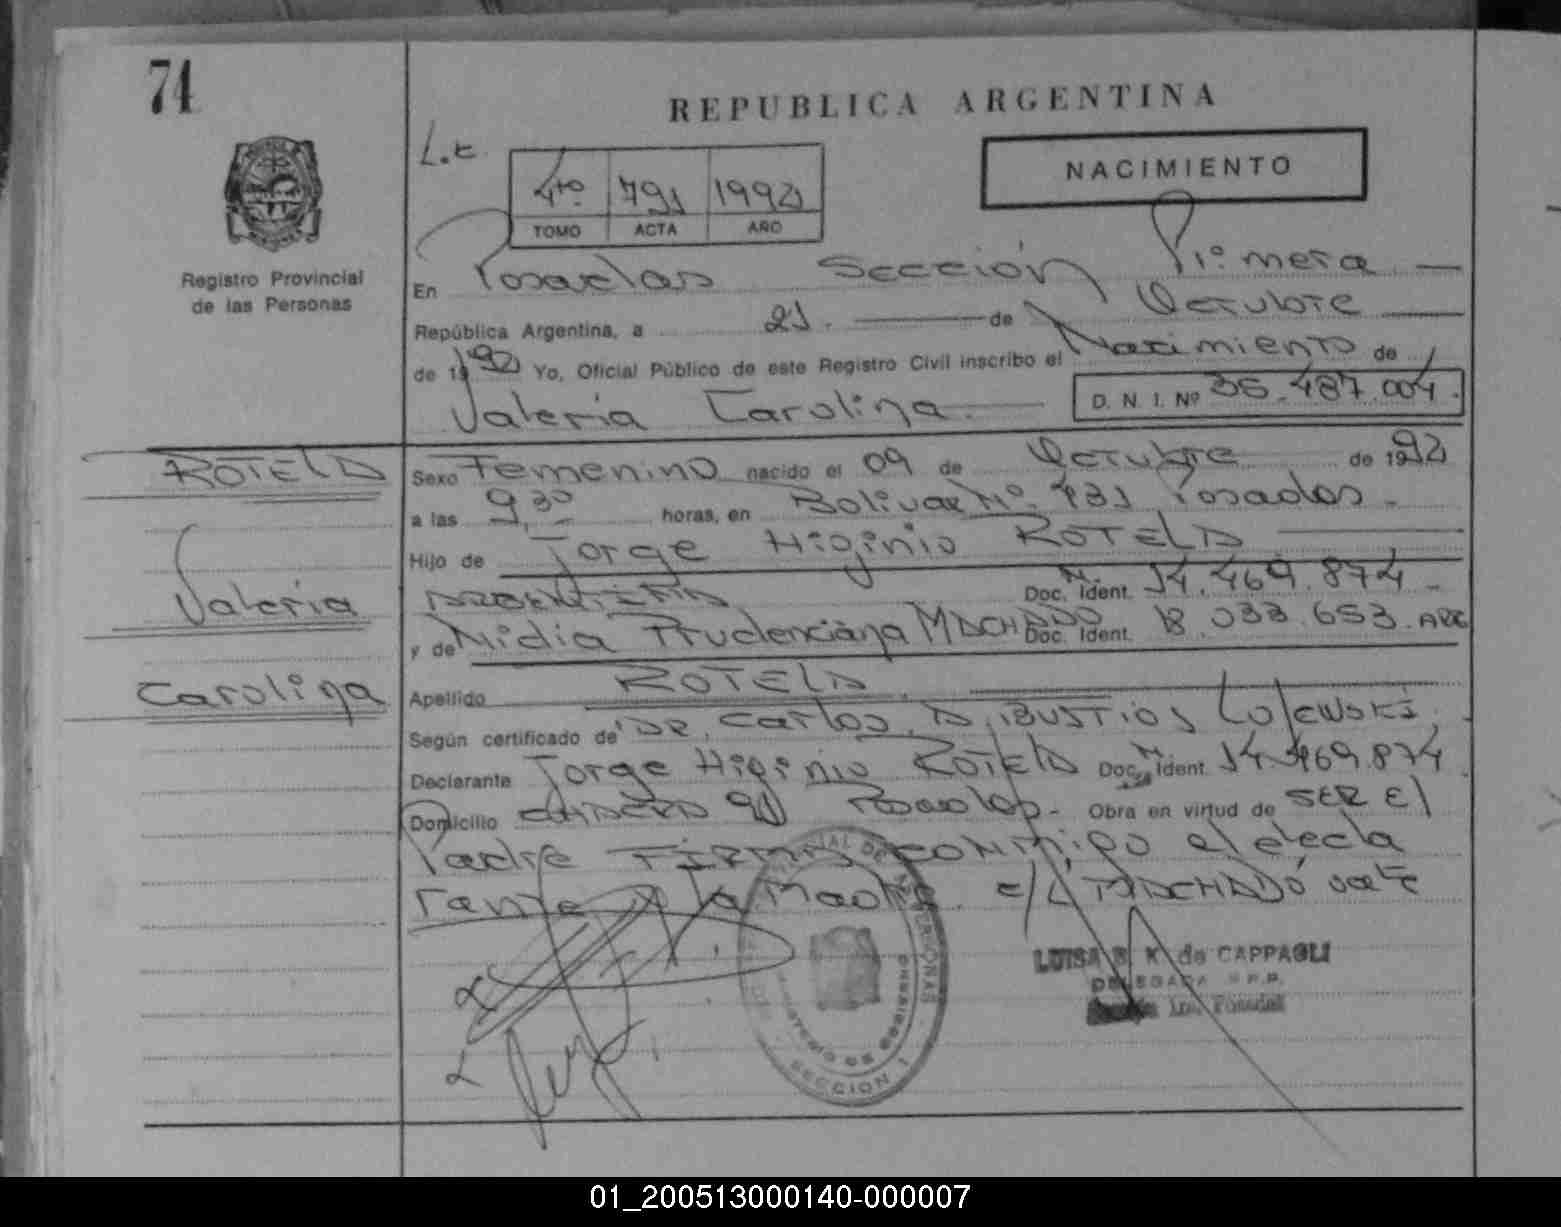 74
REPUBLICA ARGENTINA
L.E.
NACIMIENTO
4to. 791 1992
TOMO ACTA AÑO
Registro Provincial
de las Personas
En Posadas Sección Primera
República Argentina, a 21. de Octubre
de 1992 Yo, Oficial Público de este Registro Civil inscribo el Nacimiento de
Valeria Carolina. D. N. I. Nº 36.487.004.
ROTELA
Sexo Femenino nacido el 09 de Octubre de 1992
a las 9,30 horas, en Bolivar Nº. 731 Posadas.
Hijo de Jorge Higinio ROTELA
Valeria
ARGENTINA Doc. M. Ident. 14.469.874
y de Nidia Prudenciana MACHADO Doc. Ident. 18.033.653. ARG
Carolina
Apellido ROTELA.
Según certificado de DR. Carlos A. BUSTIOS
Declarante Jorge Higinio ROTELA Doc. M. Ident. 14.469.874.
Domicilio Posadas. Obra en virtud de SER El
Padre FIRMAN CONMigo el decla
rante y la Madre. E/L MACHADO vale
LUISA B. K. de CAPPAGLI
DELEGADA R.P.P.
Posadas
DE LAS PERSONAS
SECCION 1
01_200513000140-000007